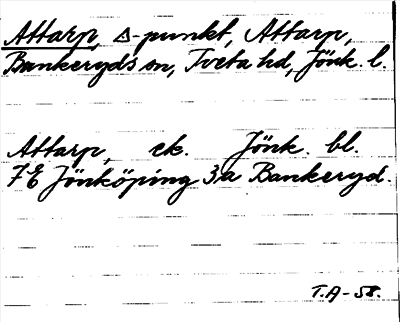 Attarp, △-punkt, Attarp,
Bankeryds sn, Tveta hd, Jönk. l.
Attarp, ek. Jönk. bl.
7E Jönköping 3a Bankeryd.
T.A-58.